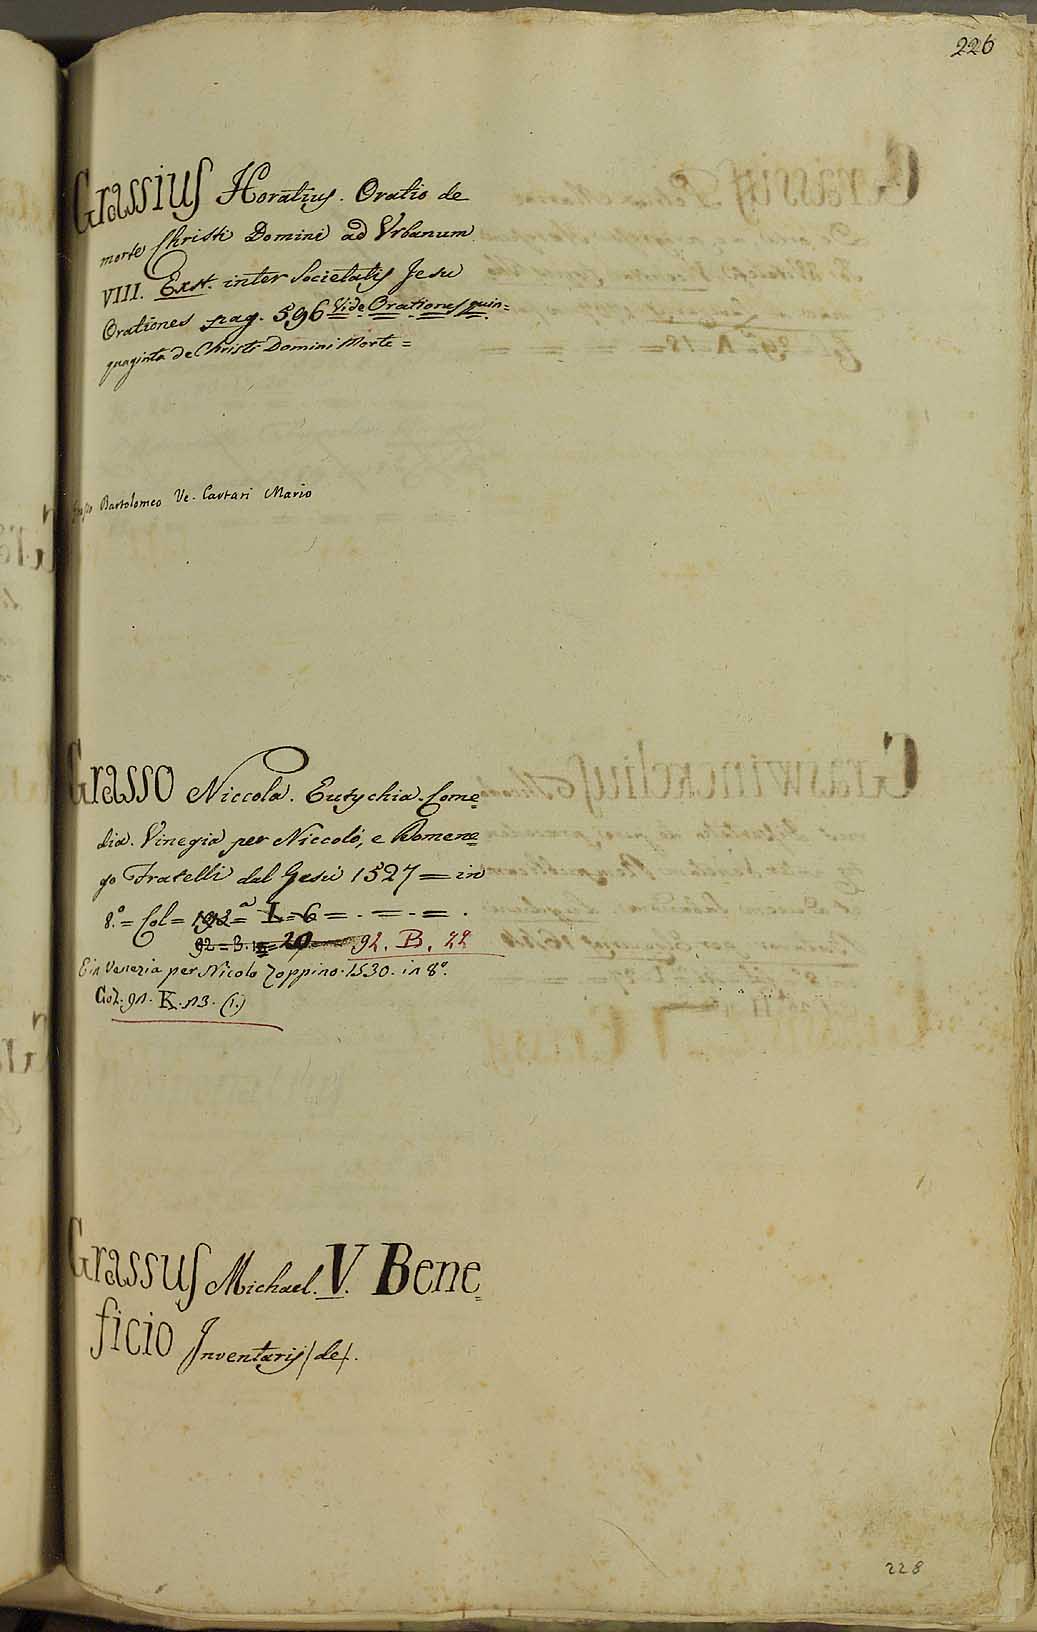 226
Grassius Horatius. Oratio de
morte Christi Domini ad Vrbanum
VIII. Exst. inter Societatis Jesu
Orationes pag. 596 Vide Orationes quin=
quaginta de Christi Domini Morte =
Bartolomeo Ve. Cartari Mario
Grasso Niccola. Eutychia. Come=
dia. Vinegia per Niccolò, e Domene=
go Fratelli dal Gesù 1527 = in
8.° = Col = 192 = a I = 6 = . = . = .
92 = B. 20 92. B. 22
E in Venezia per Nicolo Zoppino. 1530. in 8°.
Col. 91. K. 13. (1.)
Grassus Michael. V. Bene=
ficio Inventarij (de).
228